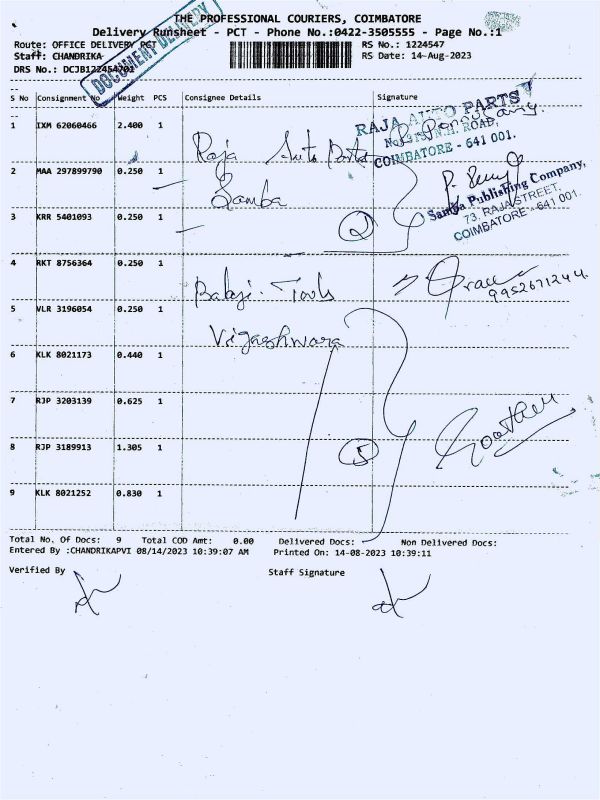 THE PROFESSIONAL COURIERS, COIMBATORE
Delivery Runsheet - PCT - Phone No.:0422-3505555 - Page No.:1
Route: OFFICE DELIVERY PCT RS No.: 1224547
Staff: CHANDRIKA RS Date: 14-Aug-2023
DRS No.: DCJB122454701
DOCUMENT DELIVERY
S No Consignment No Weight PCS Consignee Details Signature
1 IXM 62060466 2.400 1 Raja Auto Parts
RAJA AUTO PARTS
ROAD,
COIMBATORE - 641 001.
2 MAA 297899790 0.250 1 Samba
Samba Publishing Company,
73, RAJA STREET,
COIMBATORE - 641 001.
3 KRR 5401093 0.250 1 2
4 RKT 8756364 0.250 1 Balaji Tools
9952671244
5 VLR 3196054 0.250 1 Vigneshwara
6 KLK 8021173 0.440 1
7 RJP 3203139 0.625 1
8 RJP 3189913 1.305 1 5
9 KLK 8021252 0.830 1
Total No. Of Docs: 9 Total COD Amt: 0.00 Delivered Docs: Non Delivered Docs:
Entered By :CHANDRIKAPVI 08/14/2023 10:39:07 AM Printed On: 14-08-2023 10:39:11
Verified By Staff Signature